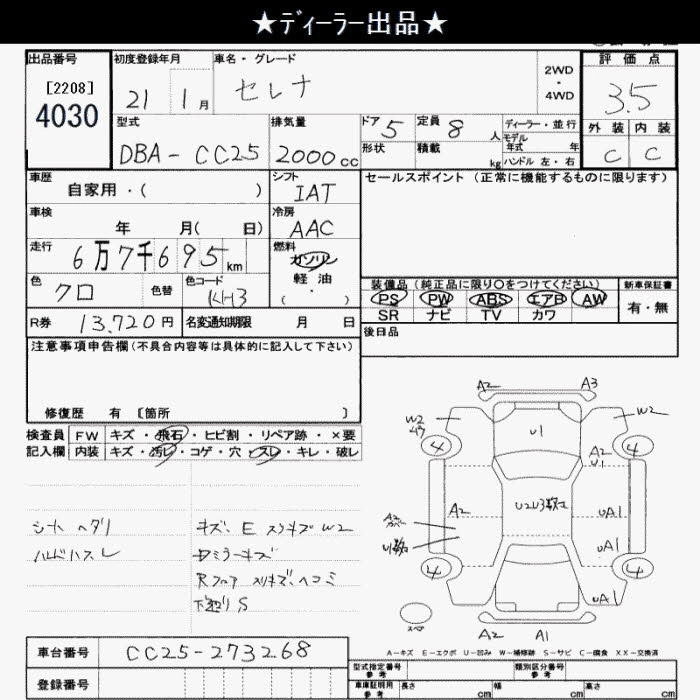 ★ディーラー出品★
出品番号 初度登録年月 車名・グレード 2WD・4WD 評価点
[2208] 4030 21 1月 セレナ 3.5
型式 排気量 ドア 5 定員 8人 ディーラー・並行 外装 内装
DBA-CC25 2000cc 形状 積載 kg モデル年式 年 ハンドル 左・右 C C
車歴 自家用・( ) シフト IAT セールスポイント(正常に機能するものに限ります)
車検 年 月( 日) 冷房 AAC
走行 6万7千695km 燃料 ガソリン
色 クロ 色替 色コード KH3 軽油 ( ・ )
装備品(純正品に限り○をつけてください) 新車保証書
PS PW ABS エアB AW 有・無
SR ナビ TV カワ
R券 13,720円 名変通知期限 月 日 後日品
注意事項申告欄(不具合内容等は具体的に記入して下さい)
修復歴 有 [箇所 ]
検査員 FW キズ・飛石・ヒビ割・リペア跡・×要
記入欄 内装 キズ・汚レ・コゲ・穴・スレ・キレ・破レ
シート ヘタリ キズ、E スリキズ W2
ハンドルスレ
S
A2 A3
W2 W2
4 U1 4
A2 U1
A2 U2U3数コ UA1
U数コ UA1
4 4
UA1
スペア A2 A1
A-キズ E-エクボ U-凹み W-補修跡 S-サビ C-腐食 XX-交換済
車台番号 CC25-273268
型式指定番号 参考 類別区分番号 参考
登録番号 車庫証明用 参考 長さ cm 幅 cm 高さ cm